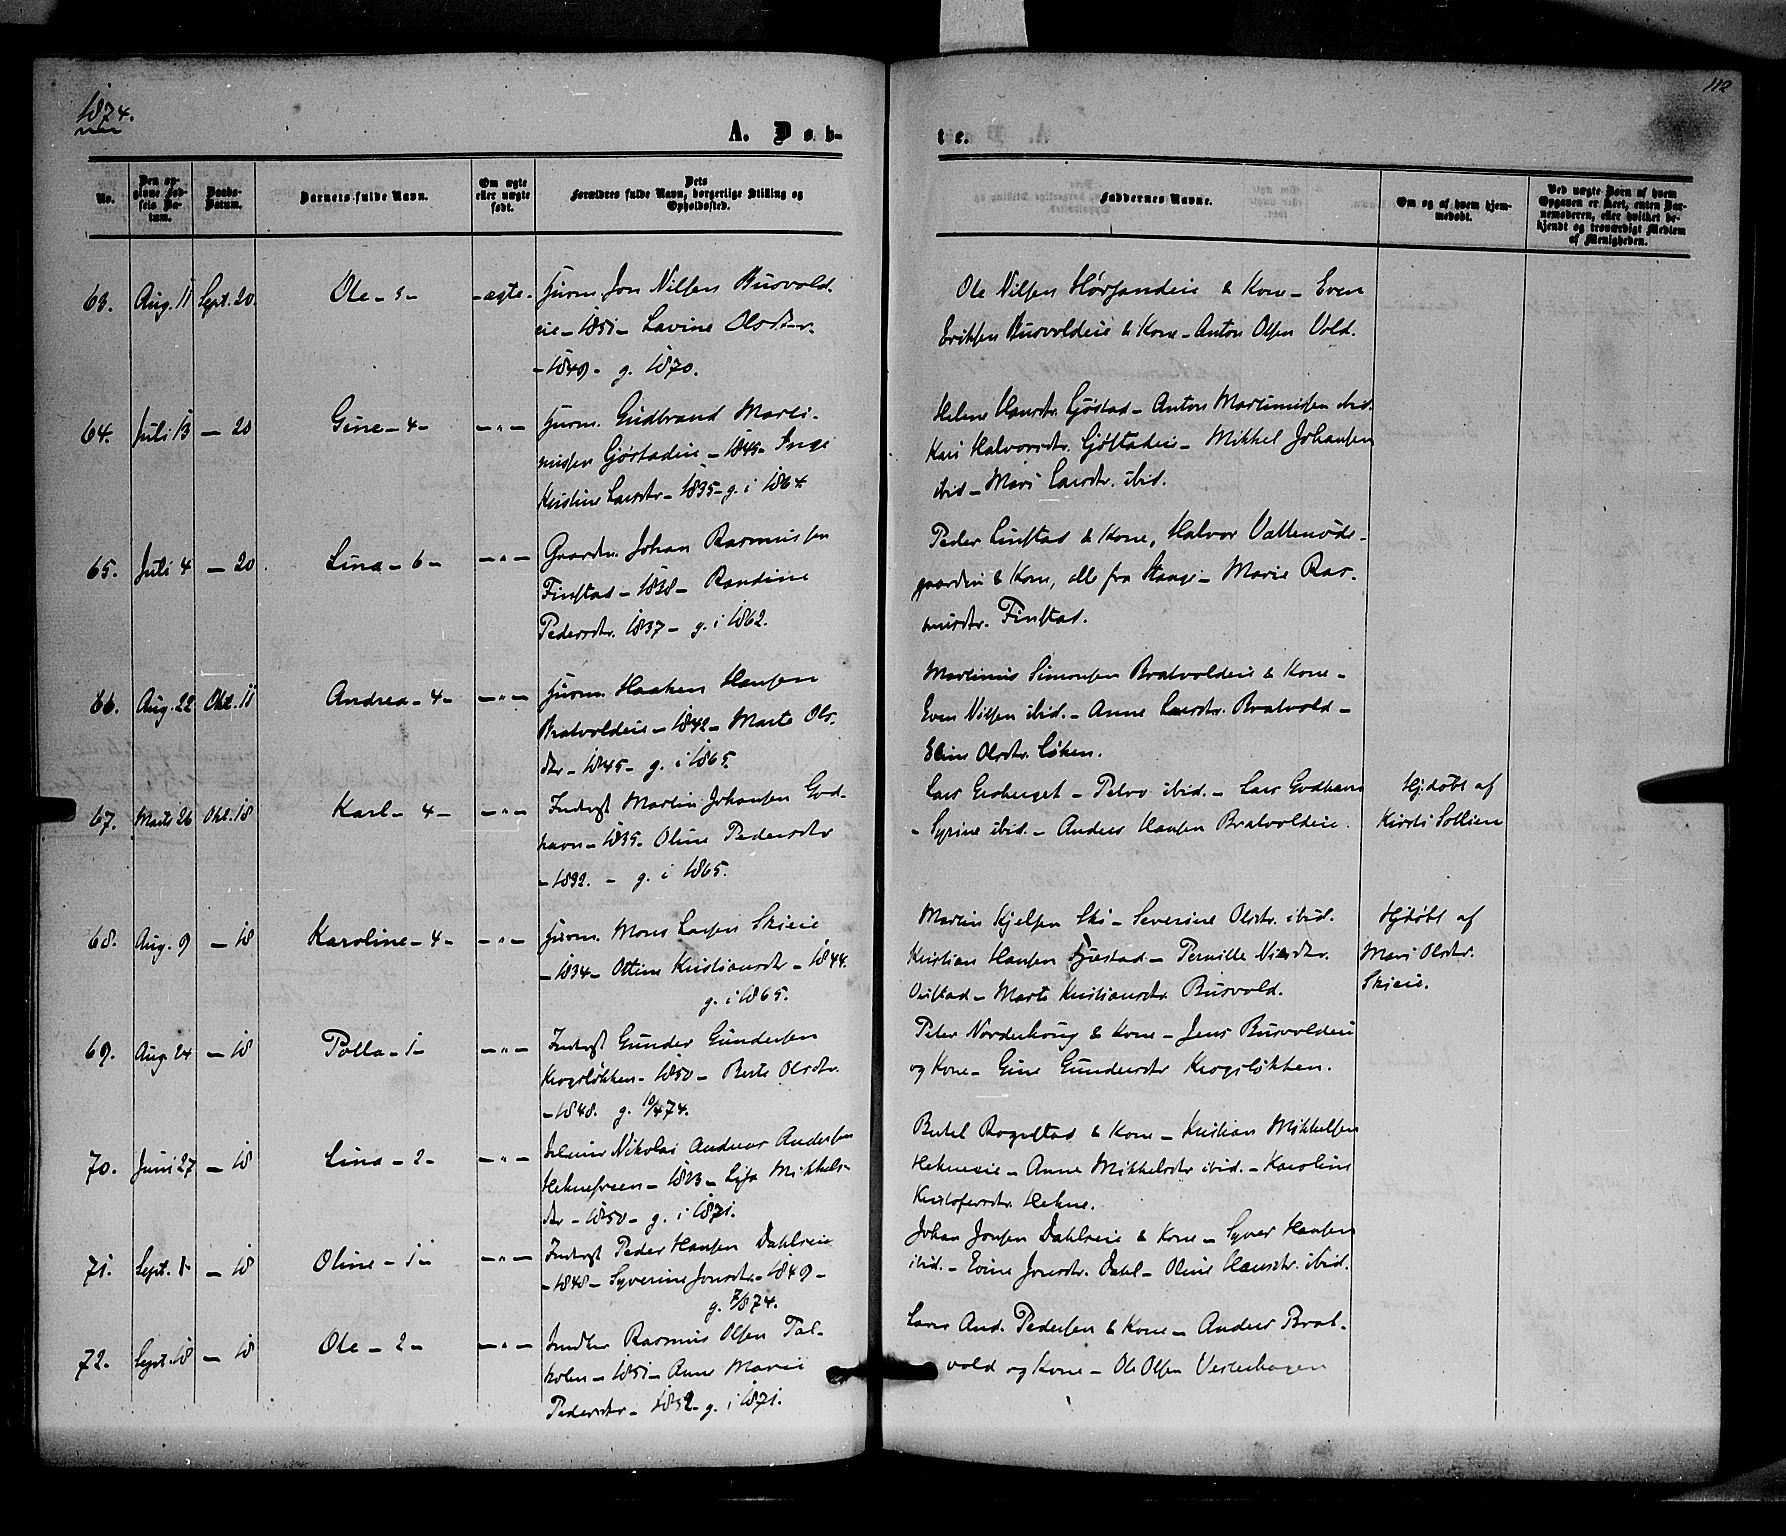 1874.
112
A. Døb-
te.
No.
Den op-
givne Fød-
sels Da-
tum.
Daabs-
Datum.
Barnets fulde Navn.
Om ægte
eller uægte
født.
Dets
Forældres fulde Navn, borgerlige Stilling og
Opholdssted.
Faddernes Navne.
Om og af hvem hjem-
medøbt.
Ved uægte Børn af hvem
Opgaven er skeet, enten Bar-
nemoderen, eller hvilket be-
kjendt og troværdigt Medlem
af Menigheden.
63. Aug. 11 Sept. 20. Ole - 3 - - ægte - Huusm. Jon Nilsen Busvold.
eie - 1851 - Lavine Olsdtr.
- 1849 - g. 1870.
Ole Nilsen Hørsandeie & Kone - Even
Eriksen Busvoldeie & Kone - Anton Olsen Vold.
64. Juli 13 - 20 Gine - 4 - - " - Huusm. Gudbrand Marti-
nussen Gjøstadeie - 1845 - Inge
Kristine Larsdtr - 1835 - g. i 1864.
Helene Hansdtr. Gjøstad - Anton Martinussen ibid.
Kari Halvorsdtr. Gjøstadeie - Mikkel Johansen
ibid - Mari Larsdtr. ibid.
65. Juli 4 - 20. Lina - 6 - - " - Gaardbr. Johan Rasmussen
Finstad - 1828 - Randine
Pedersdtr. 1837 - g. i 1862.
Peder Linstad & Kone, Halvor Vattenøde-
gaarden & Kone, alle fra Stange - Marie Ras-
musdtr. Finstad.
66. Aug. 22 Okt. 11 Andrea - 4 - - " - Huusm. Haaken Hansen
Bratvoldeie - 1842 - Marte Ols-
dtr - 1845 - g. i 1865.
Martinus Simonsen Bratvoldeie & Kone -
Even Nilsen ibid. - Anne Larsdtr. Bratvold -
Eline Olsdtr. Løken.
67. Marts 26 Okt. 18 Karl - 4 - - " - Inderst Martin Johansen God-
havn - 1835. Oline Pedersdtr
- 1832. - g. i 1865.
Lars Gisberget - Petro ibid. - Lars Godhavn
- Syrine ibid. - Anders Hansen Bratvoldeie.
Hj.døbt af
Kirsti Sollien
68. Aug. 9 - 18 Karoline - 4 - - " - Huusm. Mons Larsen Skieie
- 1834 - Ottine Kristiansdtr - 1844.
g. i 1865.
Martin Kjelsen Ski - Severine Olsdtr. ibid.
Kristian Hansen Fjæstad - Pernille Nilsdtr.
Ovistad - Marte Kristiansdtr Busvold.
Hjdøbt af
Mari Olsdtr.
Skieie.
69. Aug. 24 - 18 Polla - 1 - - " - Inderst Gunder Gundersen
Krogsløkken - 1850 - Berte Olsdtr.
- 1848. g. 10/4 74.
Peter Norderhoug & Kone - Jens Busvoldeie
og Kone - Gine Gundersdtr Krogsløkken.
70. Juni 27 - 18 Lina - 2 - - " - Nikolai Andreas Andersen
Heknesveen - 1823 - Lisa Mikkels-
dtr - 1850 - g. i 1871.
Bertel Rognstad & Kone - Kristian Mikkelsen
Hekneeie - Anne Mikkelsdtr ibid. - Karoline
Kristofersdtr. Hekne.
71. Sept. 1 - 18 Oline - 1 - - " - Inderst Peder Hansen Dahlseie
- 1848 - Syverine Jonsdtr - 1849 -
g. 7/8 74.
Johan Jonsen Dahlseie & Kone - Syver Hansen
ibid. - Eoine Jonsdtr. Dahl - Oline Hansdtr. ibid.
72. Sept. 18 - 18 Ole - 2 - - " - Rasmus Olsen Tal-
holen - 1851 - Anne Marie
Pedersdtr - 1852 - g. i 1871.
Lars And. Pedersen & Kone - Anders Brat-
vold og Kone - Ole Olsen Vesterhagen